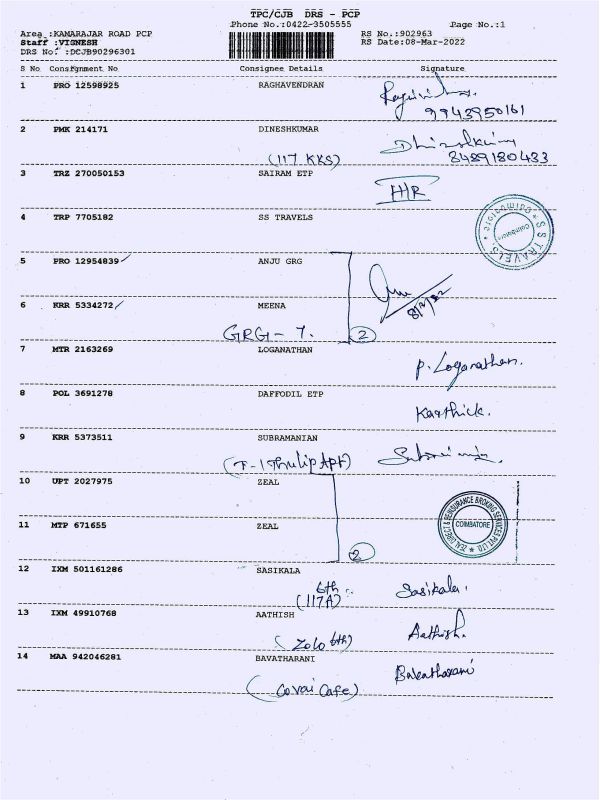 TPC/CJB DRS - PCP
Phone No.:0422-3505555 Page No.:1
Area :KAMARAJAR ROAD PCP RS No.:902963
Staff :VIGNESH RS Date:08-Mar-2022
DRS No. :DCJB90296301
S No Consignment No Consignee Details Signature
1 PRO 12598925 RAGHAVENDRAN
9943950161
2 PMK 214171 DINESHKUMAR
(117 KKS) 8489180433
3 TRZ 270050153 SAIRAM ETP
4 TRP 7705182 SS TRAVELS
S S TRAVELS. * Coimbatore *
Coimbatore
5 PRO 12954839 ANJU GRG
6 KRR 5334272 MEENA
GRG - 7. 2
7 MTR 2163269 LOGANATHAN
P. Loganathan.
8 POL 3691278 DAFFODIL ETP
Karthick.
9 KRR 5373511 SUBRAMANIAN
(T-1 Thulip Apt)
10 UPT 2027975 ZEAL
ZEAL DIRECT & REINSURANCE BROKING SERVICES PVT LTD
COIMBATORE
11 MTP 671655 ZEAL
2
12 IXM 501161286 SASIKALA
6th (117A) Sasikala.
13 IXM 49910768 AATHISH
(Zolo 6th) Aathish.
14 MAA 942046281 BAVATHARANI
(Covai Cafe) Bavatharani